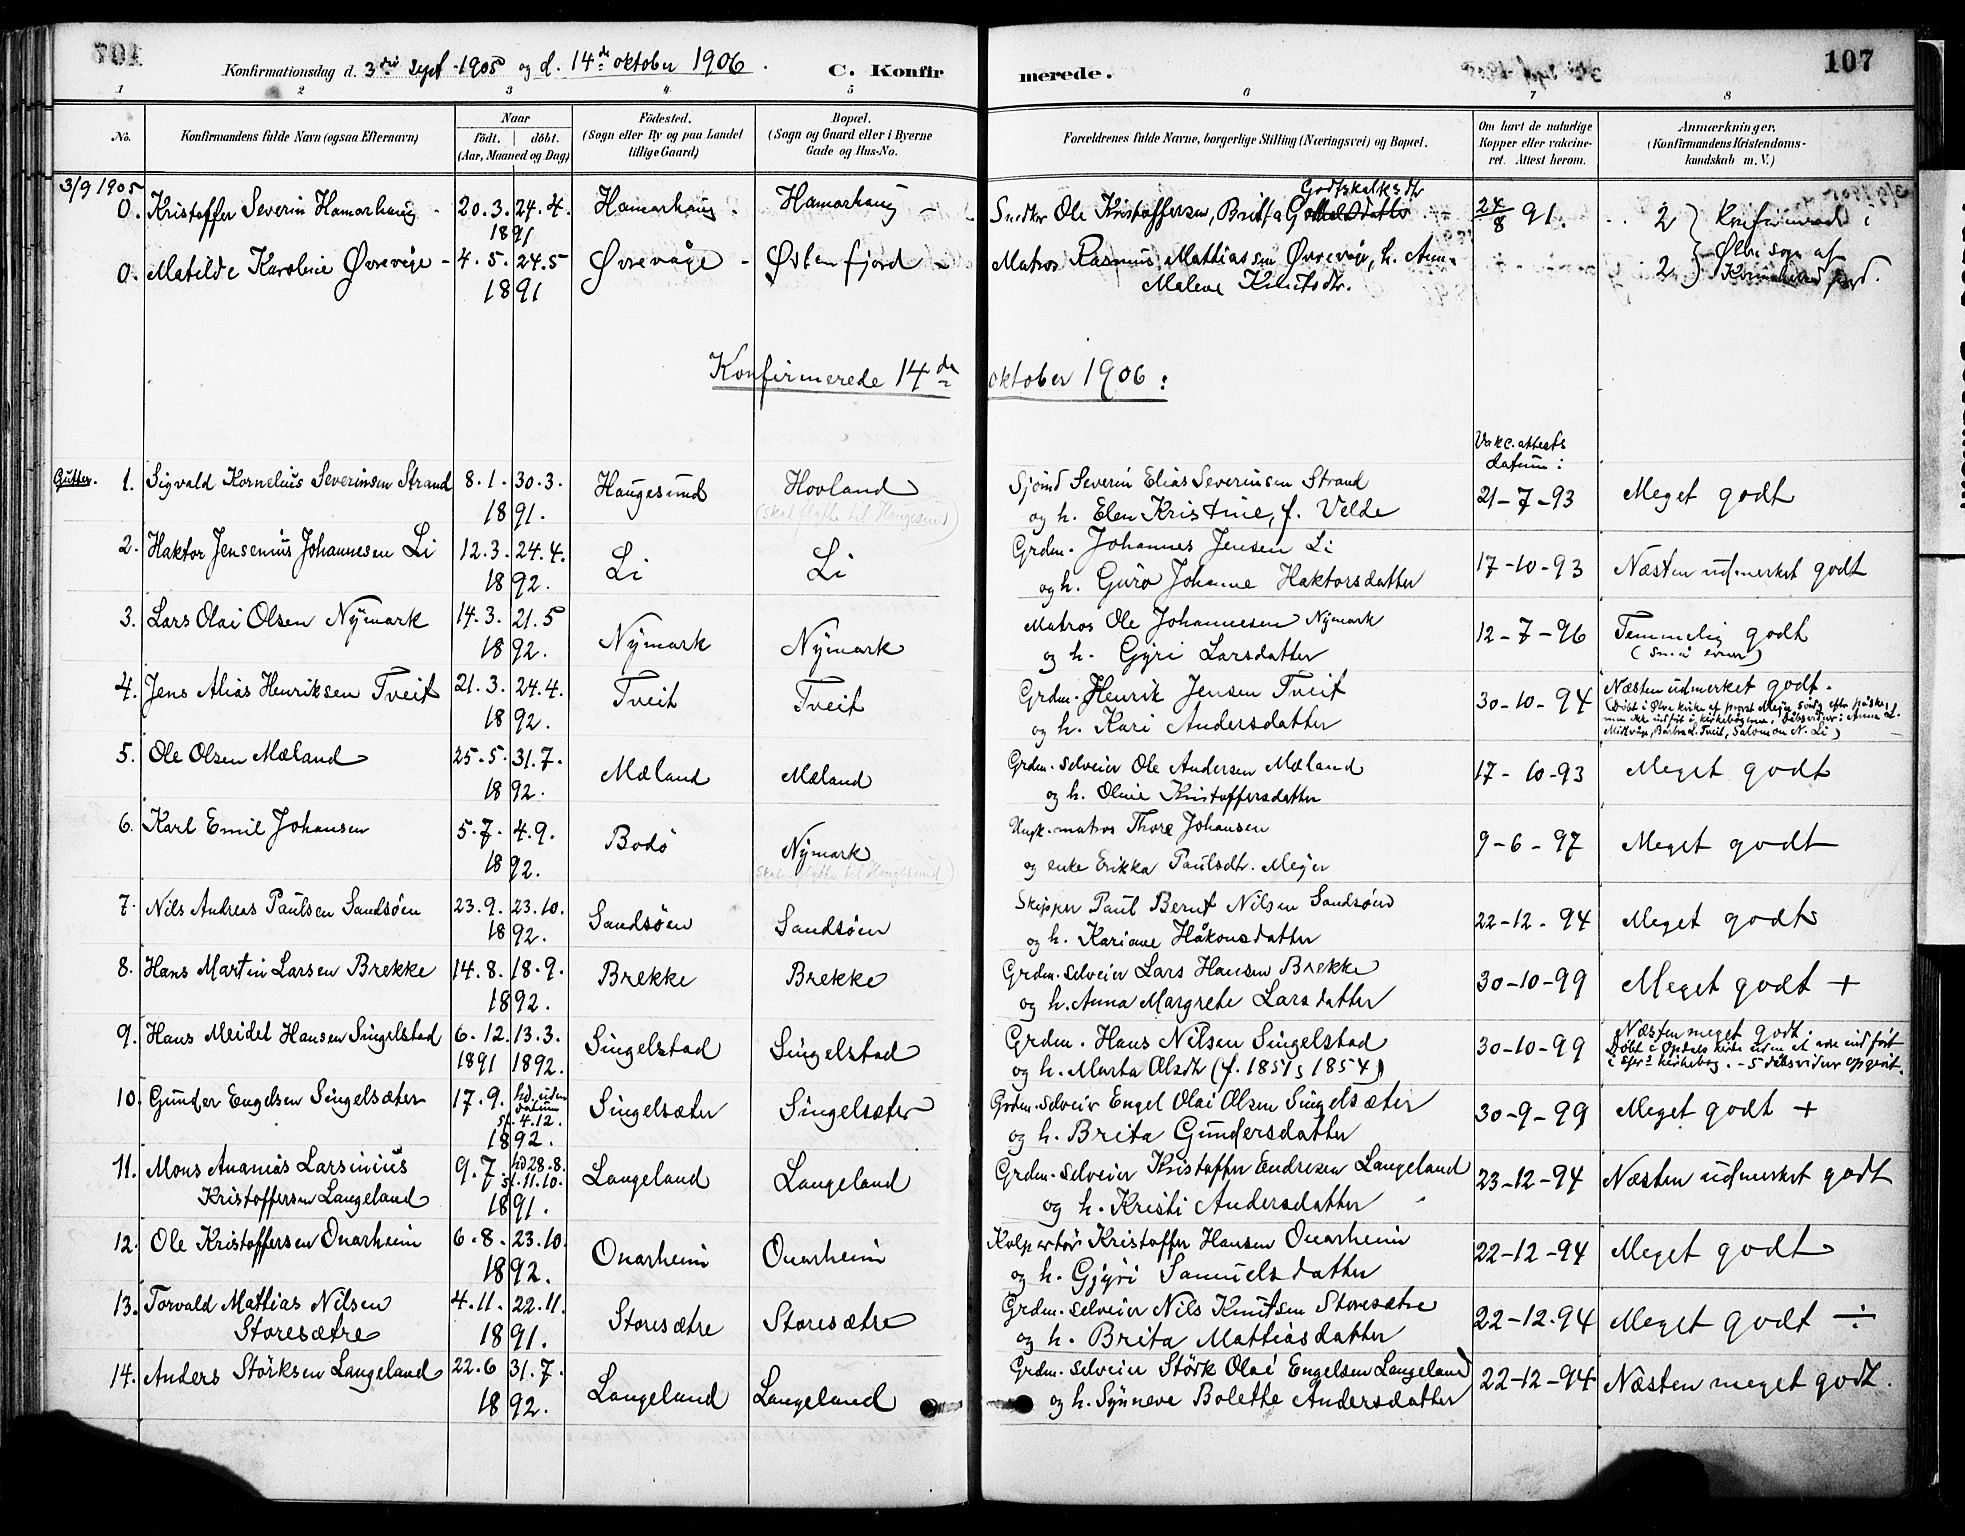 Konfirmationsdag d. 3die Sept. 1905 og d. 14de oktober 1906. C. Konfirmerede. 107
1 2 3 4 5 6 7 8
No. Konfirmandens fulde Navn (ogsaa Efternavn) Naar født. døbt. (Aar, Maaned og Dag) Fødested. (Sogn eller By og paa Landet tillige Gaard) Bopæl. (Sogn og Gaard eller i Byerne Gade og Hus-No. Forældrenes fulde Navne, borgerlige Stilling (Næringsvei) og Bopæl. Om havt de naturlige Kopper eller vakcineret. Attest herom. Anmærkninger. (Konfirmandens Kristendomskundskab m. V.)
3/9 1905
0. Kristoffer Severin Hamarhaug 20.3. 24.4. 1891 Hamarhaug Hamarhaug Snedker Ole Kristoffersen, Brita Godtskalksdtr 24/8 91. 2 Konfirmerede i
0. Matilde Karoline Øvrevåge 4.5. 24.5 1891 Øvrevåge Østenfjord Matros Rasmus Mattiassen Øvrevåge, h. Anna Malene Knutsdtr. 2 Ølve sogn af
Konfirmerede 14de oktober 1906:
Vakc. attests datum:
Gutter. 1. Sigvald Kornelius Severinsen Strand 8.1. 30.3. 1891. Haugesund Hovland (skal flytte til Haugesund) Sjömd Severin Elias Severinsen Strand
og h. Elen Kristine, f. Velde 21-7-93 Meget godt
2. Haktor Jensenius Johannesen Li 12.3. 24.4. 1892. Li Li Grdm. Johannes Jensen Li
og h. Guro Johanne Haktorsdatter 17-10-93 Næsten udmerket godt
3. Lars Olai Olsen Nymark 14.3. 21.5 1892. Nymark Nymark Matros Ole Johannesen Nymark
og h. Gyri Larsdatter 12-7-96 Temmelig godt
(små evner)
4. Jens Alias Henriksen Tveit 21.3. 24.4. 1892. Tveit Tveit Grdm. Henrik Jensen Tveit
og h. Kari Andersdatter 30-10-94 Næsten udmerket godt.
(Døbt i Ølve kirke af provst Meyer sönd. efter påske,
men ikke indført i kirkebogen. Dåbsvidner: Anna L.
Midtvåge, Barbra L. Tveit, Salomon N. Li)
5. Ole Olsen Mæland 25.5. 31.7. 1892. Mæland Mæland Grdm. selveier Ole Andersen Mæland
og h. Oline Kristoffersdatter 17-10-93 Meget godt
6. Karl Emil Johansen 5.7. 4.9. 1892. Bodö Nymark (skal flytte til Haugesund) Ungk. matros Thore Johansen
og enke Erikka Paulsdtr. Mejer 9-6-97 Meget godt
7. Nils Andreas Paulsen Sandsöen 23.9. 23.10. 1892. Sandsöen Sandsöen Skipper Paul Bernt Nilsen Sandsöen
og h. Kariane Håkonsdatter 22-12-94 Meget godt
8. Hans Martin Larsen Brekke 14.8. 18.9. 1892. Brekke Brekke Grdm. selveier Lars Hansen Brekke
og h. Anna Margrete Larsdatter 30-10-99 Meget godt +
9. Hans Meidel Hansen Singelstad 6.12. 1891 13.3. 1892. Singelstad Singelstad Grdm. Hans Nilsen Singelstad
og h. Marta Olsdtr (f. 1851, 1854) 30-10-99 Næsten meget godt.
Døbt i Opdals kirke uden at være indført
i spr. kirkebog. - 5 dåbsvidner opgivet.
10. Gunder Engelsen Singelsæter 17.9. hd. uden datum st. 4.12. 1892. Singelsæter Singelsæter Grdm. selveier Engel Olai Olsen Singelsæter
og h. Brita Gundersdatter 30-9-99 Meget godt +
11. Mons Ananias Larsinius
Kristoffersen Langeland 9.7. hd 28.8. st. 11.10. 1891. Langeland Langeland Grdm. selveier Kristoffer Endresen Langeland
og h. Kristi Andersdatter 23-12-94 Næsten udmerket godt
12. Ole Kristoffersen Onarheim 6.8. 23.10. 1892. Onarheim Onarheim Kolportör Kristoffer Hansen Onarheim
og h. Gjyri Samuelsdatter 22-12-94 Meget godt
13. Torvald Mattias Nilsen
Storesætre 4.11. 22.11. 1891. Storesætre Storesætre Grdm. selveier Nils Knutsen Storesætre
og h. Brita Mattiasdatter 22-12-94 Meget godt ÷
14. Anders Störksen Langeland 22.6 31.7. 1892. Langeland Langeland Grdm. selveier Störk Olai Engelsen Langeland
og h. Synneve Bolette Andersdatter 22-12-94 Næsten meget godt.